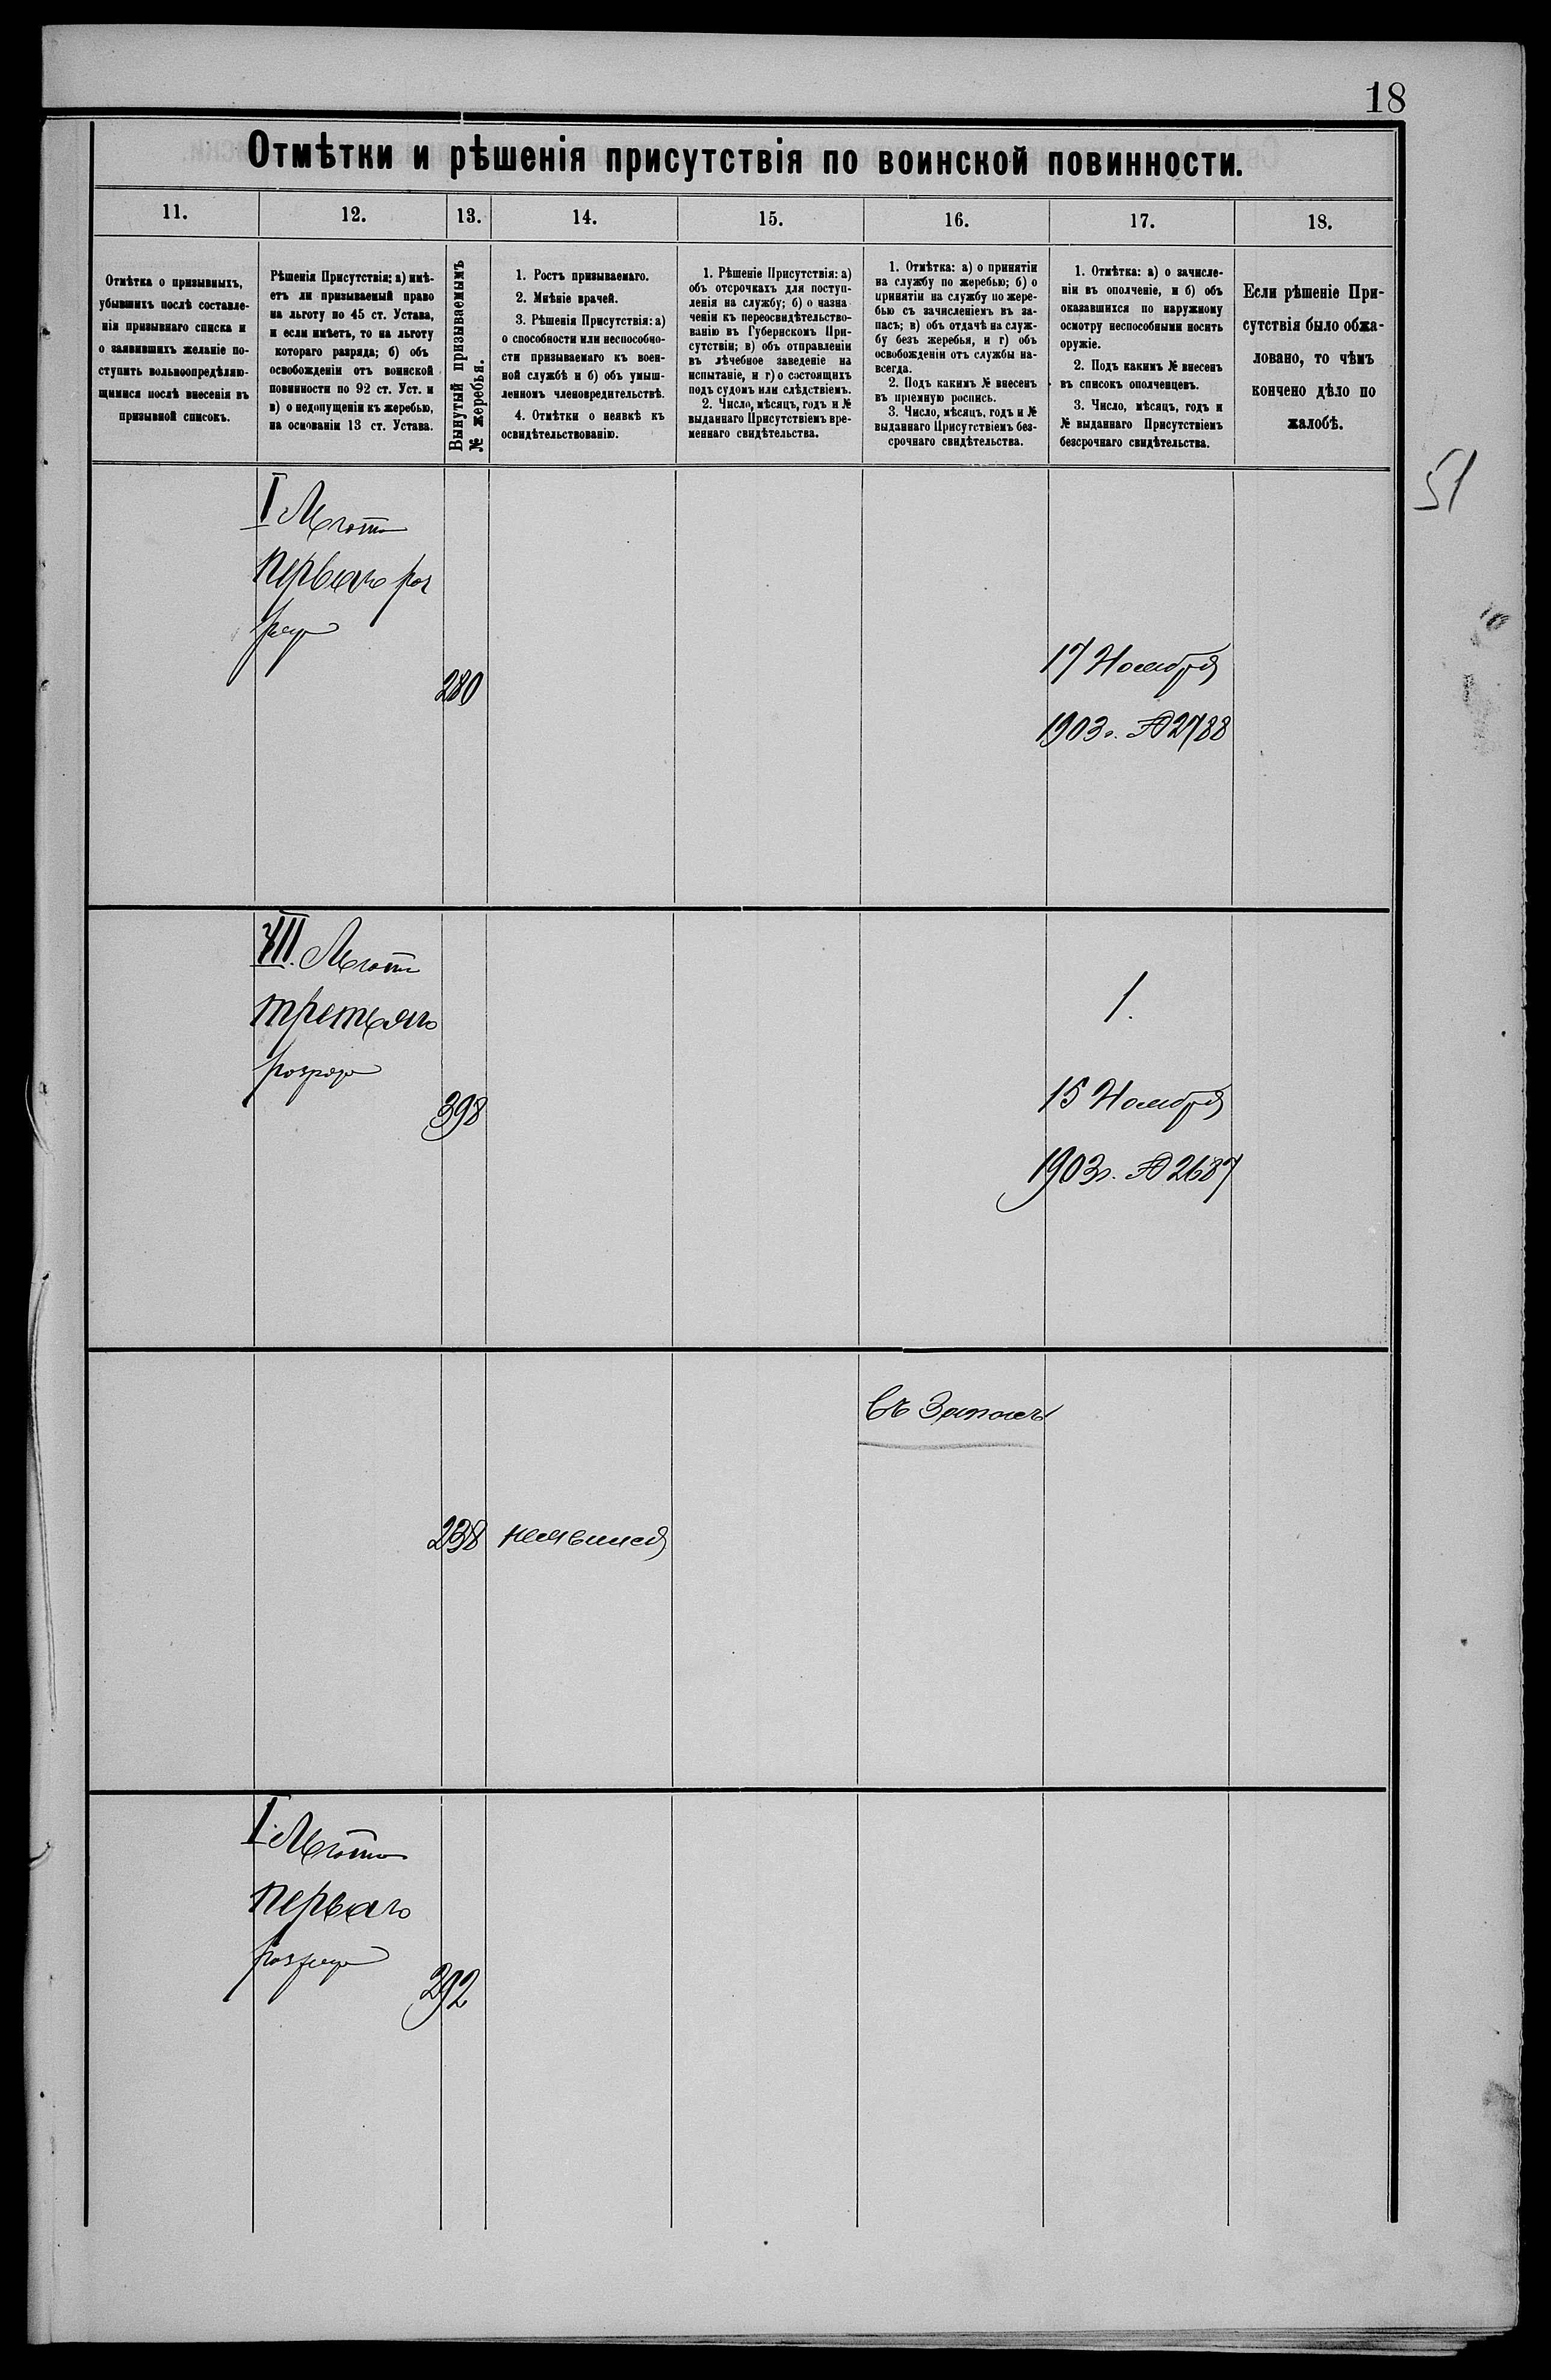 18
Отмѣтки и рѣшенія присутствія по воинской повинности.
11.
12.
13.
14.
15.
16.
17.
18.
Отмѣтка о призывныхъ,
убывшихъ послѣ составле-
нія призывнаго списка и
о заявившихъ желаніе по-
ступить вольноопредѣляю-
щимися послѣ внесенія въ
призывной списокъ.
Рѣшенія Присутствія: а) имѣ-
етъ ли призываемый право
на льготу по 45 ст. Устава,
и если имѣетъ, то на льготу
котораго разряда; б) объ
освобожденіи отъ воинской
повинности по 92 ст. Уст. и
в) о недопущеніи къ жеребью,
на основаніи 13 ст. Устава.
Вынутый призываемымъ
№ жеребья.
1. Ростъ призываемаго.
2. Мнѣніе врачей.
3. Рѣшенія Присутствія: а)
о способности или неспособно-
сти призываемаго къ воен-
ной службѣ и б) объ умыш-
ленномъ членовредительствѣ.
4. Отмѣтки о неявкѣ къ
освидѣтельствованію.
1. Рѣшеніе Присутствія: а)
объ отсрочкахъ для поступ-
ленія на службу; б) о назна
ченіи къ переосвидѣтельство-
ванію въ Губернскомъ При-
сутствіи; в) объ отправленіи
въ лѣчебное заведеніе на
испытаніе, и г) о состоящихъ
подъ судомъ или слѣдствіемъ.
2. Число, мѣсяцъ, годъ и №
выданнаго Присутствіемъ вре-
меннаго свидѣтельства.
1. Отмѣтка: а) о принятіи
на службу по жеребью; б) о
принятіи на службу по жере-
бью съ зачисленіемъ въ за-
пасъ; в) объ отдачѣ на служ-
бу безъ жеребья, и г) объ
освобожденіи отъ службы на-
всегда.
2. Подъ какимъ № внесенъ
въ пріемную роспись.
3. Число, мѣсяцъ, годъ и №
выданнаго Присутствіемъ без-
срочнаго свидѣтельства.
1. Отмѣтка: а) о зачисле-
ніи въ ополченіе, и б) объ
оказавшихся по наружному
осмотру неспособными носить
оружіе.
2. Подъ какимъ № внесенъ
въ списокъ ополченцевъ.
3. Число, мѣсяцъ, годъ и
№ выданнаго Присутствіемъ
безсрочнаго свидѣтельства.
Если рѣшеніе При-
сутствія было обжа-
ловано, то чѣмъ
кончено дѣло по
жалобѣ.
51
I Льгота
перваго раз
ряда
280
17 Ноября
1903 г. № 2788
VIII. Льгота
третьяго
разряда
398
1.
15 Ноября
1903 г. № 2687
Въ Запасъ
238
неявился
I. Льгота
перваго
разряда
392